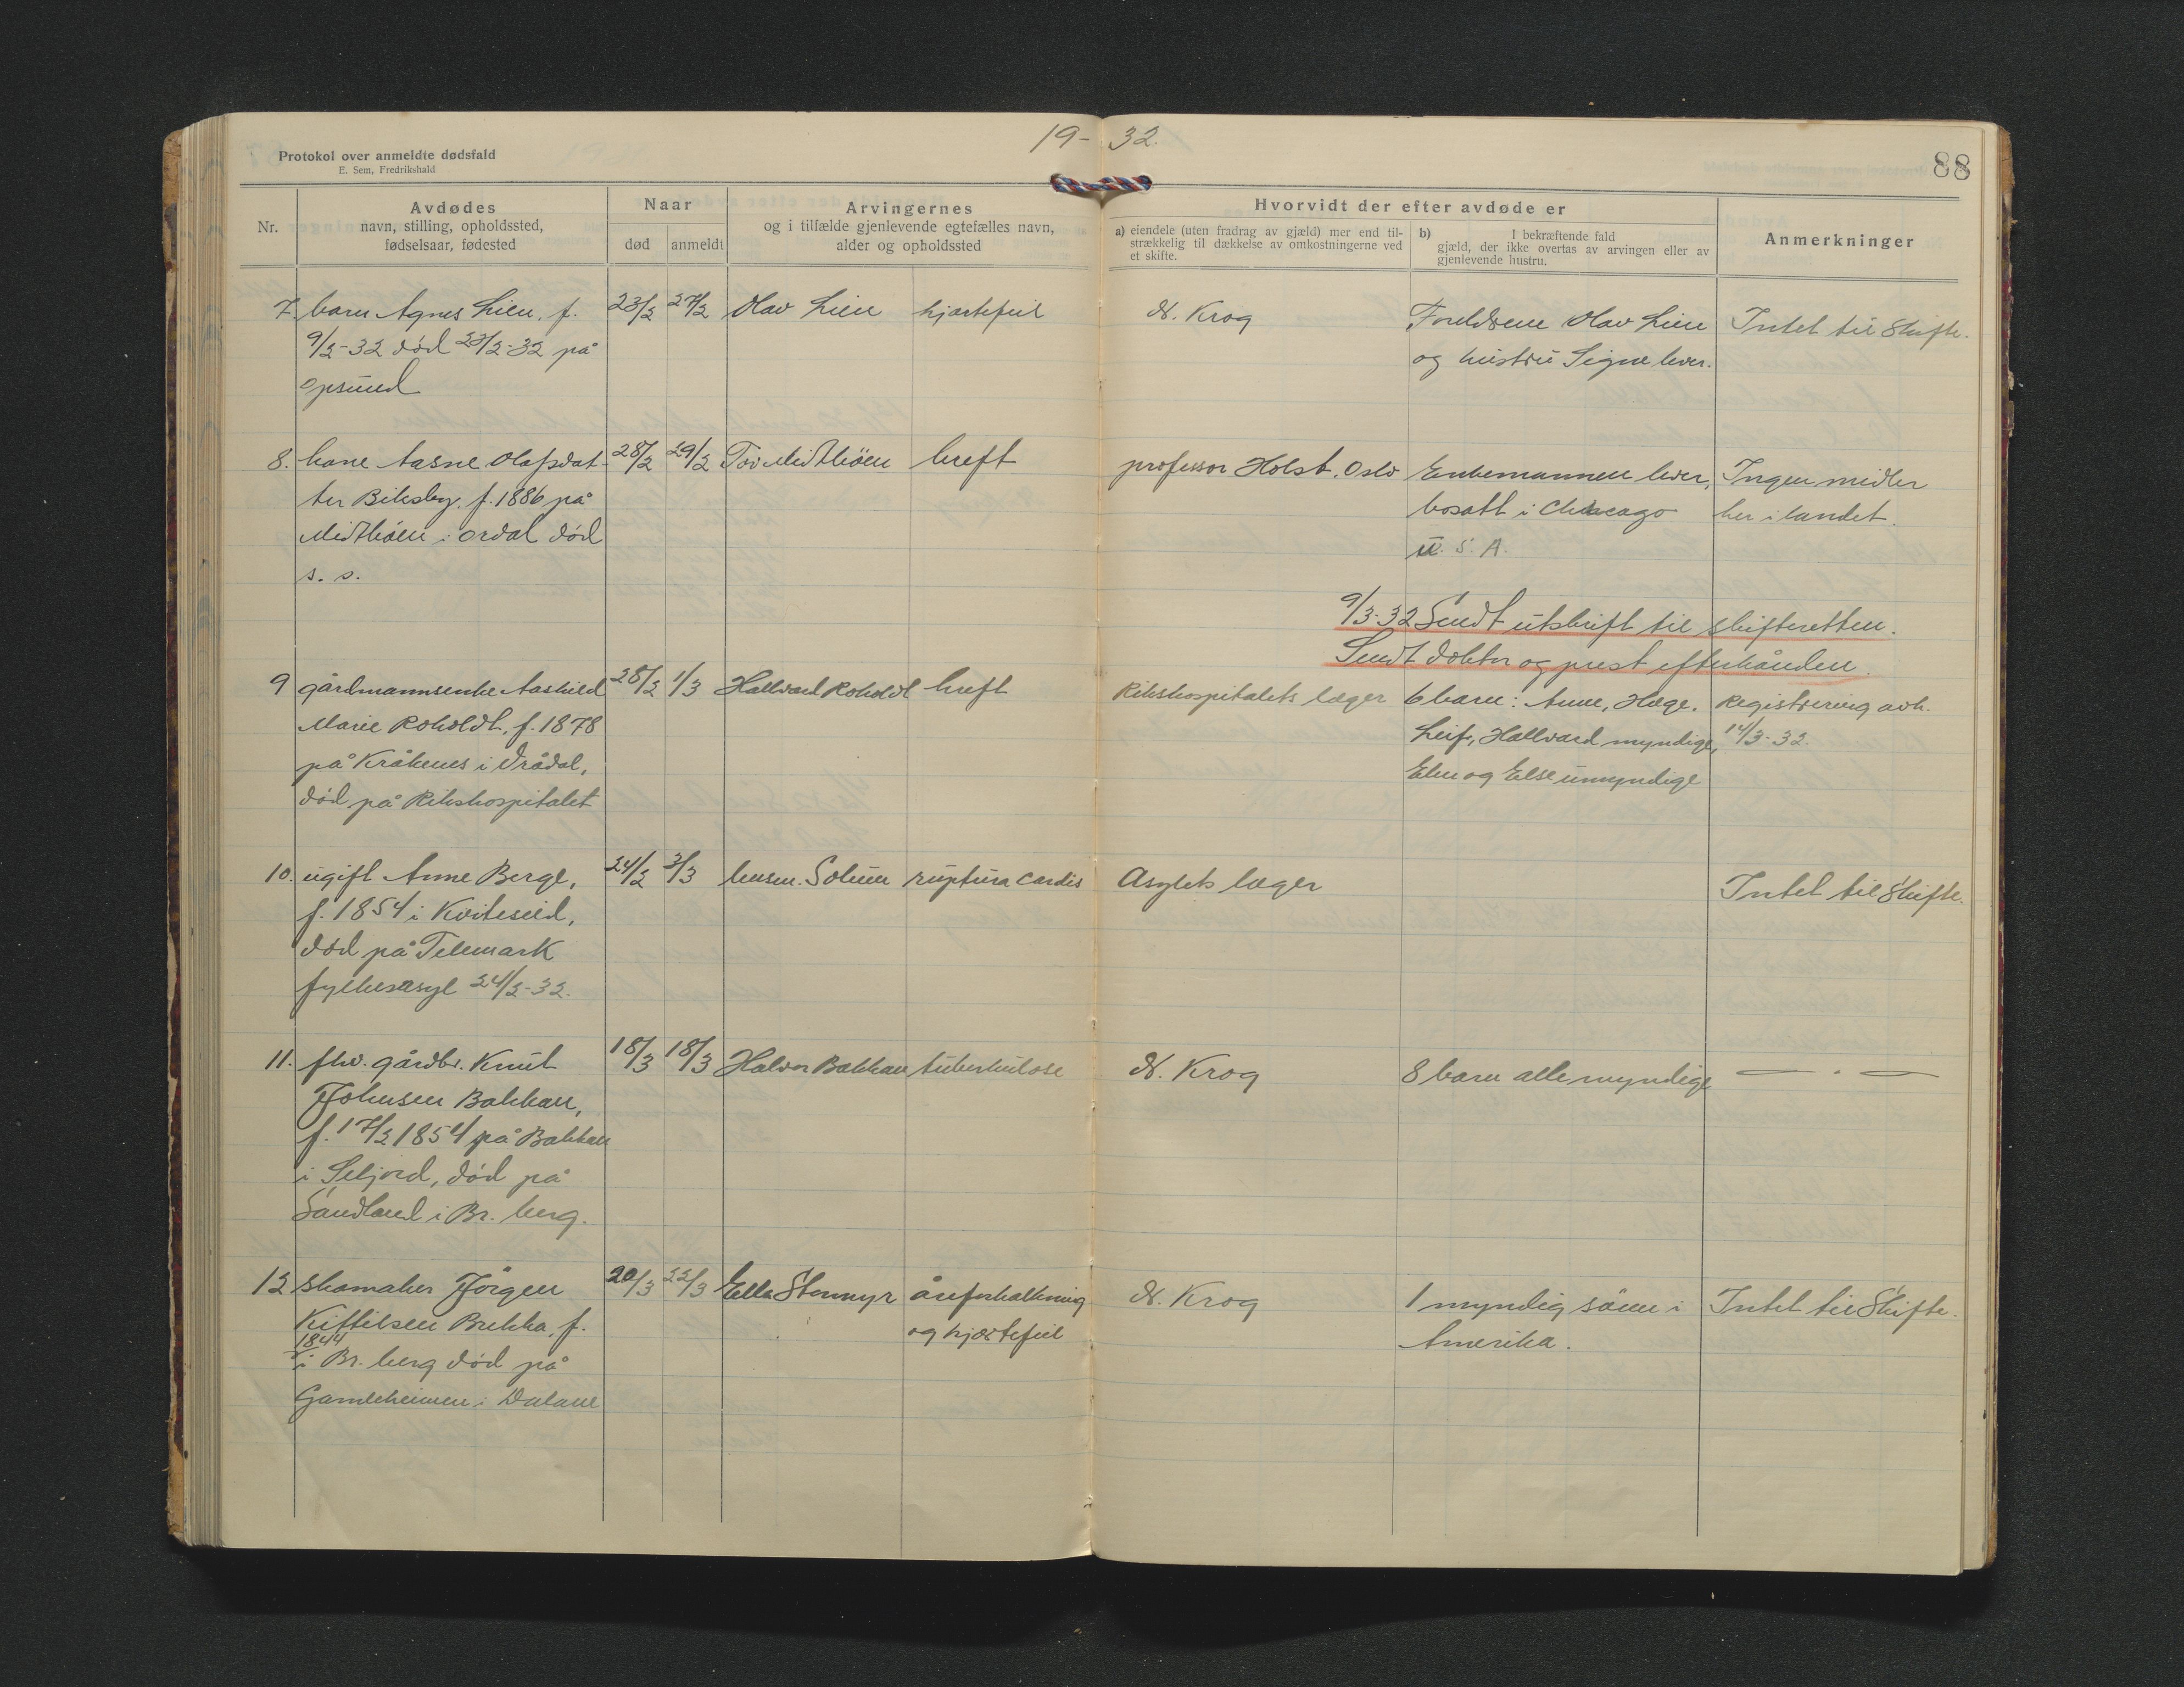 19-32.
88
Protokol over anmeldte dødsfald
E. Sem, Fredrikshald
Nr.
Avdødes
navn, stilling, opholdssted,
fødselsaar, fødested
Naar
død
anmeldt
Arvingernes
og i tilfælde gjenlevende egtefælles navn,
alder og opholdssted
Hvorvidt der efter avdøde er
a) eiendele (uten fradrag av gjæld) mer end til-
strækkelig til dækkelse av omkostningerne ved
et skifte.
b) I bekræftende fald
gjæld, der ikke overtas av arvingen eller av
gjenlevende hustru.
Anmerkninger
7. barn Agnes Lien, f. 23/2 27/2 Olav Lien hjartefeil N. Krog Foreldrene Olav Lien Intet til Skifte.
9/2-32 død 23/2-32 på og hustru Signe lever.
Opsund
8. kone Aasne Olafsdat- 28/2 29/2 Tov Midtbøen kreft professor Holst, Oslo Enkemannen lever, Ingen midler
ter Biksby, f. 1886 på bosatt i Chicago her i landet.
Midtbøen i Ordal død U.S.A.
s. s.
9/3-32 Sendt utskrift til skifteretten.
Sendt doktor og prest efterhånden.
9 gårdmannsenke Aashild 28/2 1/3 Hallvard Roholdt kreft Rikshospitalets læger 6 barn: Anne, Hæge, Registrering avh.
Marie Roholdt, f. 1878 Leif, Hallvard myndige, 14/3-32.
på Kråkenes i Vrådal, Elen og Else umyndige
død på Rikshospitalet
10. ugift Anne Berge, 24/2 3/3 lensm. Solum ruptura cardis Asylets læger Intet til Skifte.
f. 1854 i Kviteseid,
død på Telemark
fylkesasyl 24/2-32.
11. fhv. gårdbr. Knut 18/3 18/3 Halvor Bakkan tuberkulose N. Krog 8 barn alle myndige — " —
Johnsen Bakkan,
f. 17/2 1854 på Bakkan
i Seljord, død på
Sandland i Br. berg.
12 skomaker Jörgen 20/3 22/3 Ella Stenmyr åreforkalkning N. Krog 1 myndig sönn i Intet til Skifte.
Kittilsen Brekka, f. og hjertefeil Amerika.
1844
i Br. berg død på
Gamleheimen i Dalane